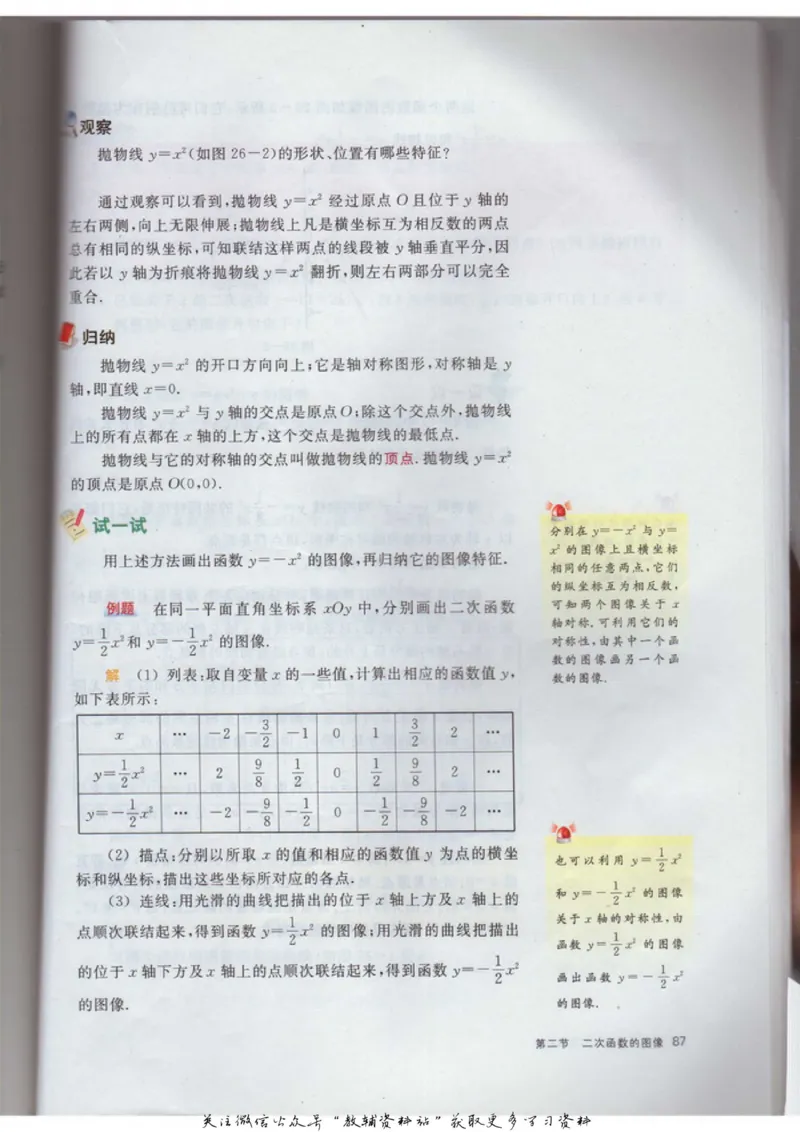 观察
抛物线 y=x²(如图 26-2)的形状、位置有哪些特征?
通过观察可以看到,抛物线 y=x² 经过原点 O 且位于 y 轴的
左右两侧,向上无限伸展;抛物线上凡是横坐标互为相反数的两点
总有相同的纵坐标,可知联结这样两点的线段被 y 轴垂直平分,因
此若以 y 轴为折痕将抛物线 y=x² 翻折,则左右两部分可以完全
重合.
归纳
抛物线 y=x² 的开口方向向上;它是轴对称图形,对称轴是 y
轴,即直线 x=0.
抛物线 y=x² 与 y 轴的交点是原点O;除这个交点外,抛物线
上的所有点都在 x 轴的上方,这个交点是抛物线的最低点.
抛物线与它的对称轴的交点叫做抛物线的顶点.抛物线 y=x²
的顶点是原点 O(0,0).
试一试
用上述方法画出函数 y=-x² 的图像,再归纳它的图像特征.
例题 在同一平面直角坐标系 xOy 中,分别画出二次函数
y=1/2x²和 y=-1/2x² 的图像.
解 (1) 列表:取自变量 x 的一些值,计算出相应的函数值 y,
如下表所示:
x … -2 -3/2 -1 0 1 3/2 2 …
y=1/2x² … 2 9/8 1/2 0 1/2 9/8 2 …
y=-1/2x² … -2 -9/8 -1/2 0 -1/2 -9/8 -2 …
(2) 描点:分别以所取 x 的值和相应的函数值 y 为点的横坐
标和纵坐标,描出这些坐标所对应的各点.
(3) 连线:用光滑的曲线把描出的位于 x 轴上方及 x 轴上的
点顺次联结起来,得到函数 y=1/2x² 的图像;用光滑的曲线把描出
的位于 x 轴下方及 x 轴上的点顺次联结起来,得到函数 y=-1/2x²
的图像.
分别在 y=-x² 与 y=
x² 的图像上且横坐标
相同的任意两点,它们
的纵坐标互为相反数,
可知两个图像关于 x
轴对称.可利用它们的
对称性,由其中一个函
数的图像画另一个函
数的图像.
也可以利用 y=1/2x²
和 y=-1/2x² 的图像
关于 x 轴的对称性,由
函数 y=1/2x² 的图像
画出函数 y=-1/2x²
的图像.
第二节 二次函数的图像 87
关注微信公众号"教辅资料站"获取更多学习资料